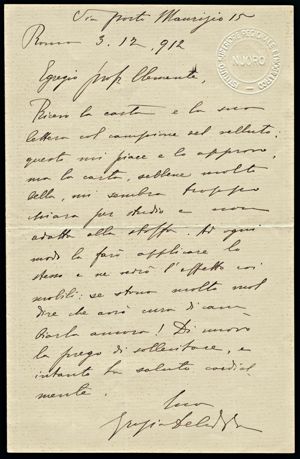 Via Porto Maurizio 15
Roma 3. 12, 912
NUORO
Egregio prof Clemente,
Ricevo la carta e la sua
lettera col campione del velluto:
questo mi piace e lo approvo,
ma la carta, sebbene molto
bella, mi sembra troppo
chiara per studio e non
adatta alla stoffa. Ad ogni
modo la farò applicare lo
stesso e ne vedrò l'effetto coi
mobili: se stona molto vuol
dire che avrò cura di cam-
biarla ancora! Di nuovo
la prego di sollecitare, e
intanto la saluto cordial
mente.
Sua
Grazia Deledda